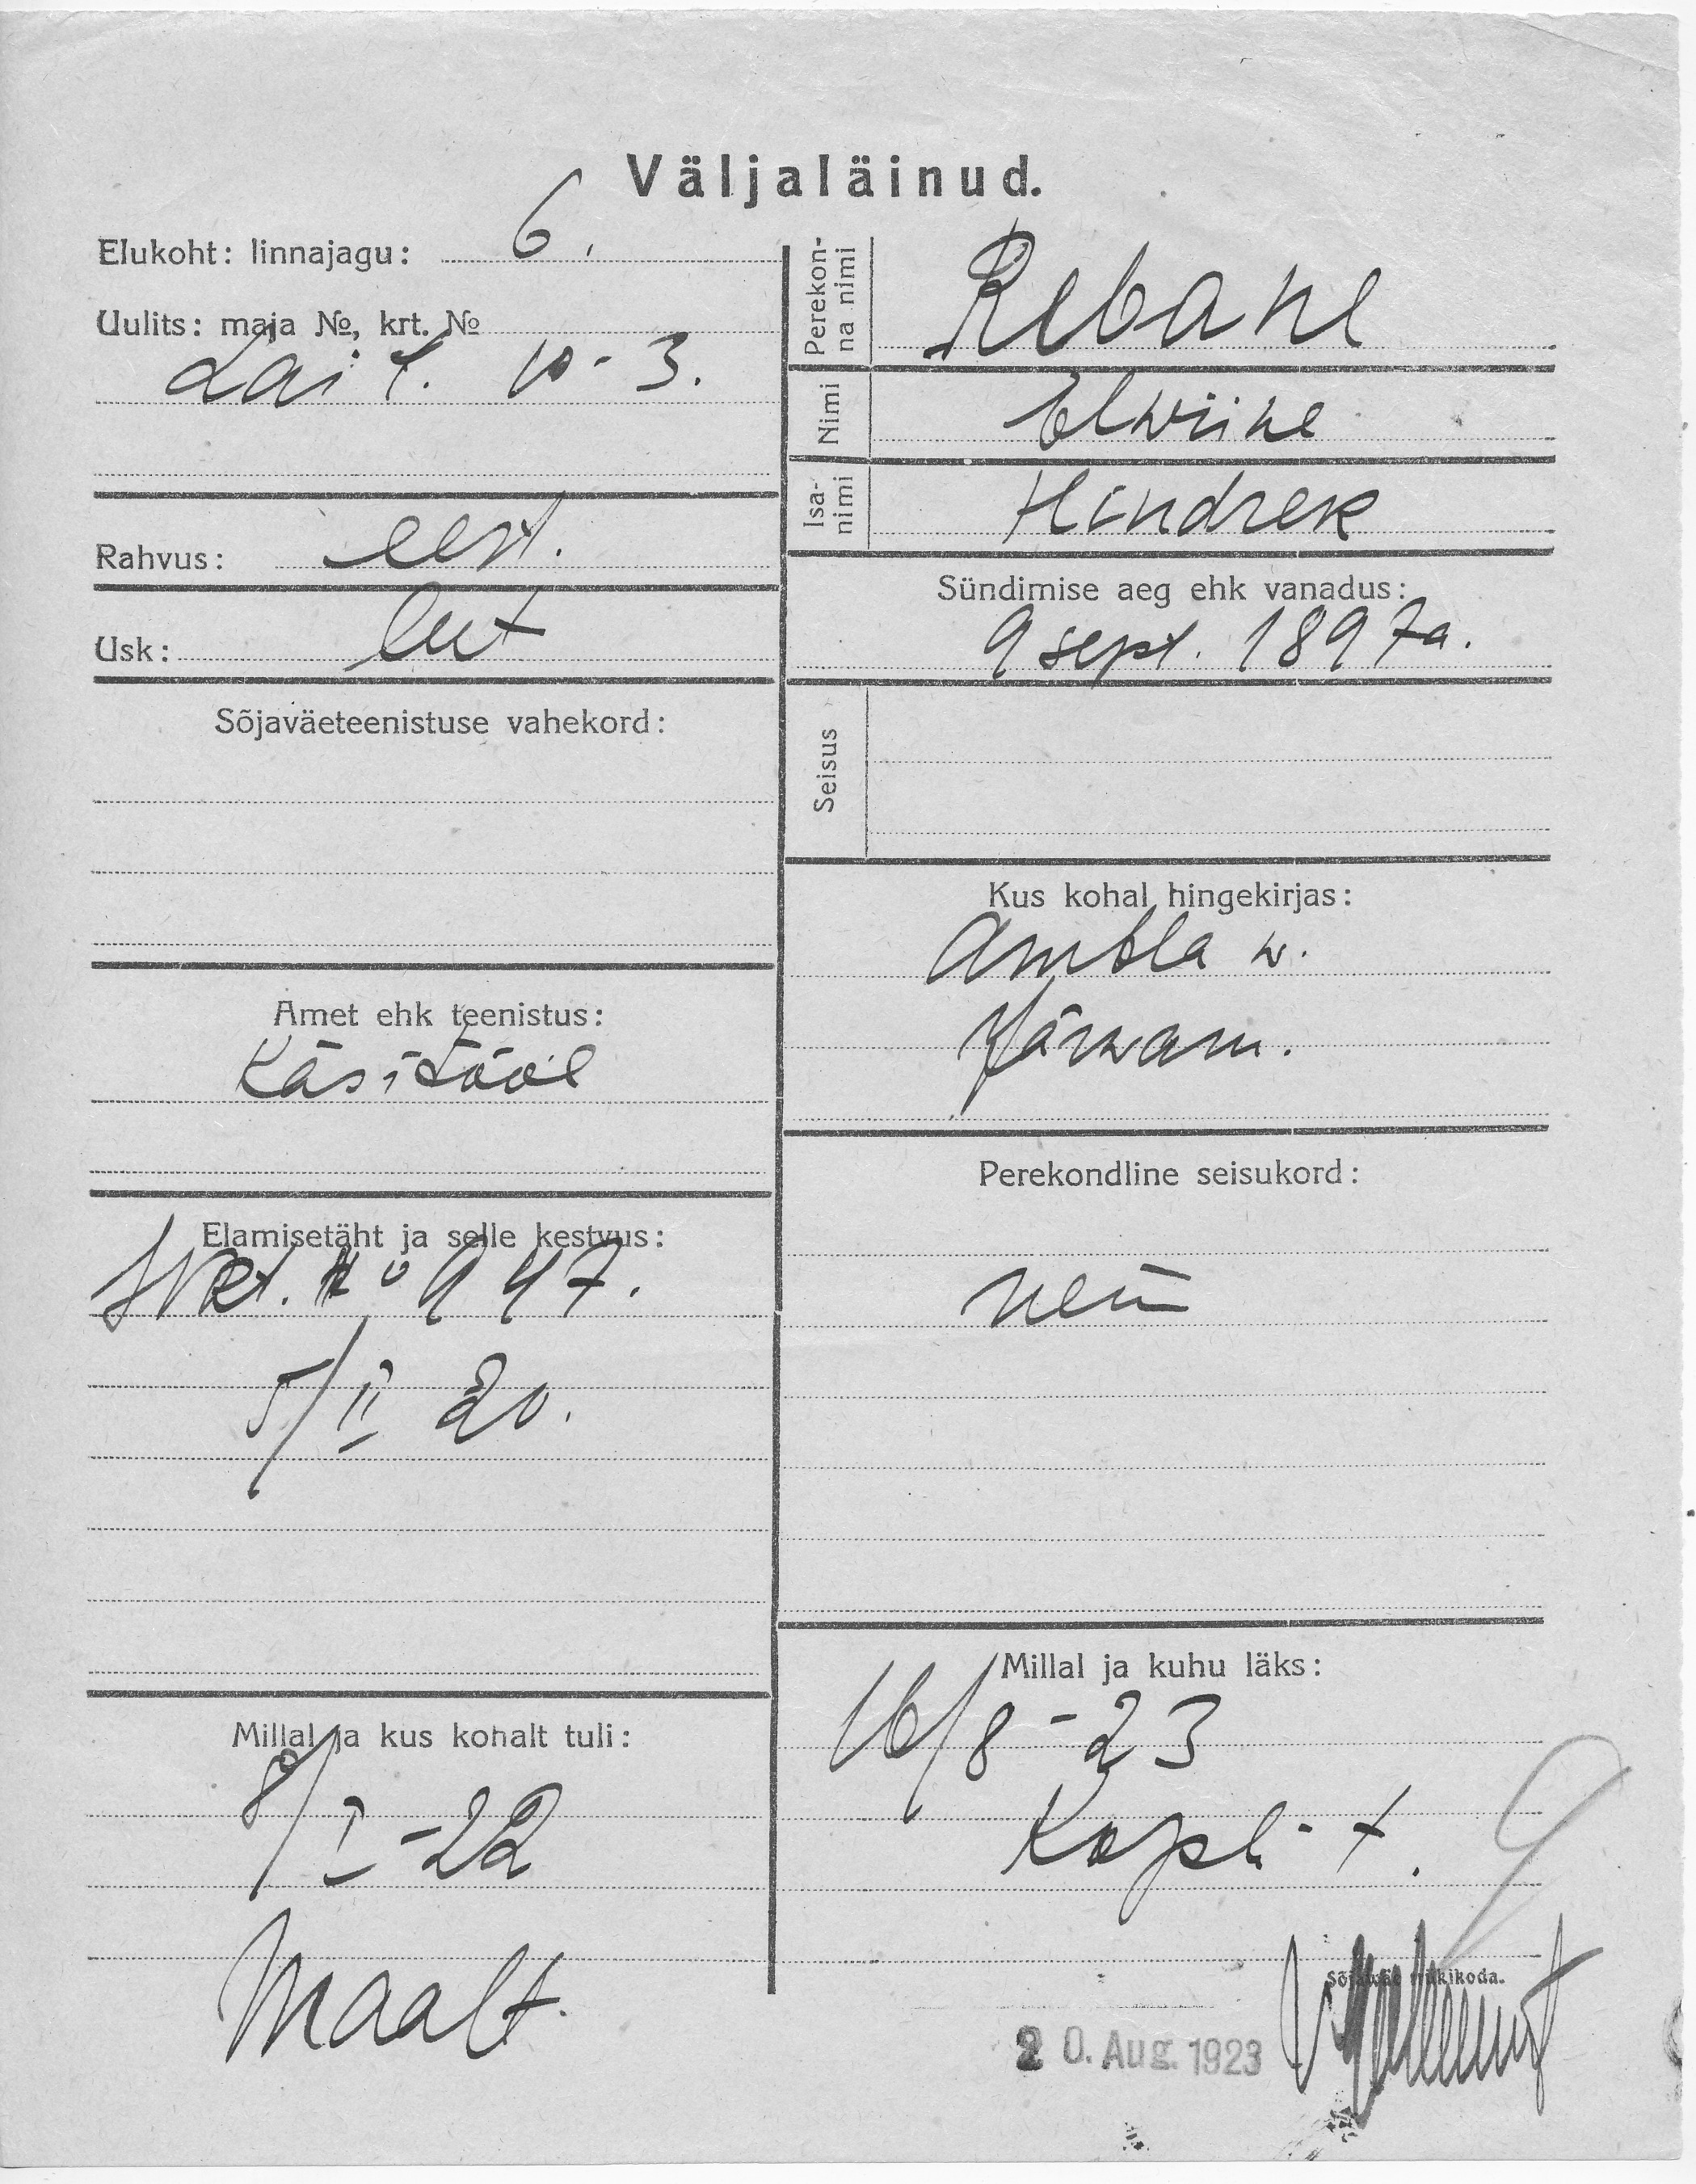 Väljaläinud.
Elukoht: linnajagu: 6.
Uulits: maja №, krt. №
Lai t. 10-3.
Rahvus: eest.
Usk: lut
Sõjaväeteenistuse vahekord:
Amet ehk teenistus:
Käsitööl
Elamisetäht ja selle kestvus:
No 947.
5/II 20.
Millal ja kus kohalt tuli:
8/I-22
Maalt.
Perekon-
na nimi
Rebane
Nimi
Elwiine
Isa-
nimi
Hindrek
Sündimise aeg ehk vanadus:
9 sept. 1897 a.
Seisus
Kus kohal hingekirjas:
Ambla w.
Järwam.
Perekondline seisukord:
neiu
Millal ja kuhu läks:
16/8-23
Kopli t.
Sõjaväe trükikoda.
20. Aug. 1923